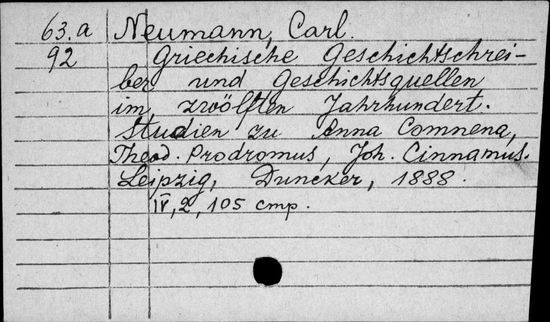 63.a Neumann, Carl.
92 Griechische Geschichtschrei-
ber und Geschichtsquellen
im zwölften Jahrhundert.
Studien zu Anna Comnena,
Theod. Prodromus, Joh. Cinnamus.
Leipzig, Duncker, 1888.
IV, 2, 105 cmp.